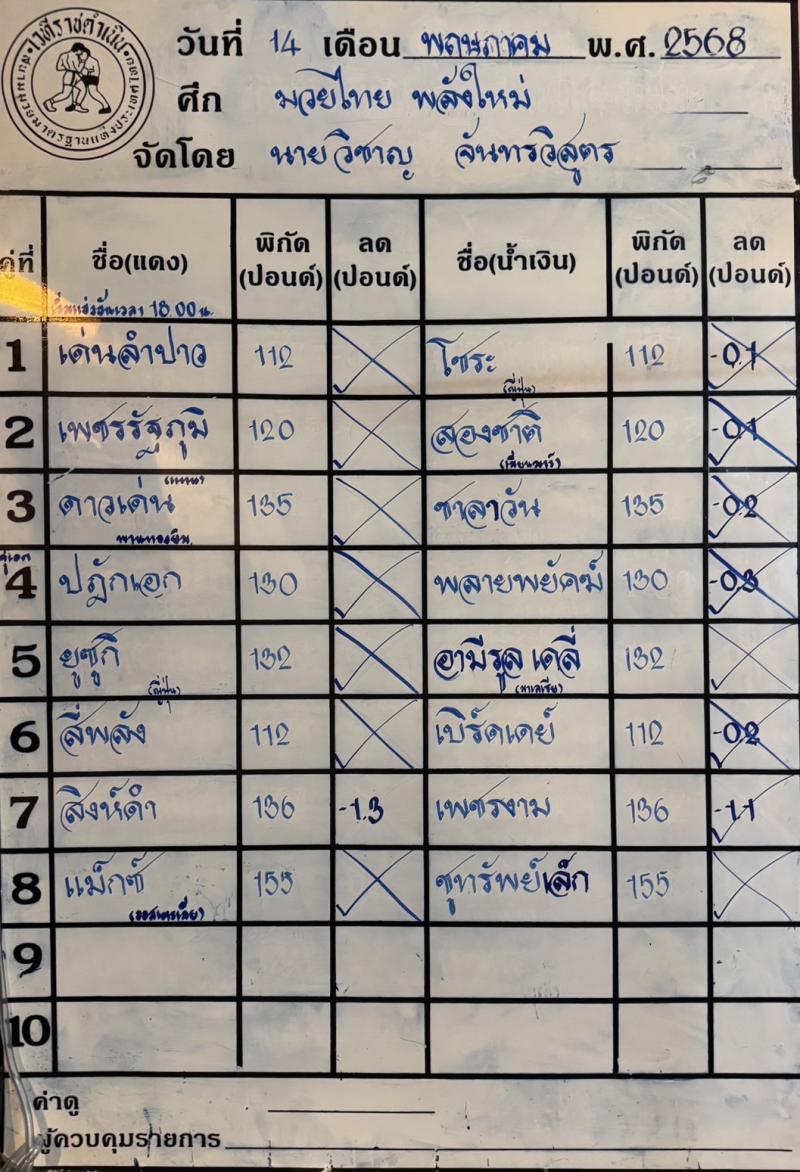 เวทีราชดำเนิน
สนามมวยมาตรฐานแห่งประเทศไทย
วันที่ 14 เดือน พฤษภาคม พ.ศ. 2568
ศึก มวยไทย พลังใหม่
จัดโดย นายวิชาญ จันทรวิสูตร
คู่ที่ ชื่อ(แดง) พิกัด (ปอนด์) ลด (ปอนด์) ชื่อ(น้ำเงิน) พิกัด (ปอนด์) ลด (ปอนด์)
เริ่มแข่งขันเวลา 18.00 น.
1 เด่นลำปาว 112 โซระ 112 -0.1
(ญี่ปุ่น)
2 เพชรรัฐภูมิ 120 สองชาติ 120 -0.1
(เมียนมาร์)
3 ดาวเด่น 135 ชาลาวัน 135 -0.2
พานทองยิม
คู่เอก
4 ปฎักเอก 130 พลายพยัคฆ์ 130 -0.3
5 ยูซูกิ 132 อามีรูล เดลี่ 132
(ญี่ปุ่น) (มาเลเซีย)
6 สี่พลัง 112 เบิร์ดเดย์ 112 -0.2
7 สิงห์ดำ 136 -1.3 เพชรงาม 136 -1.1
8 แม็กซ์ 155 ชูทรัพย์เล็ก 155
(ออสเตรเลีย)
9
10
ค่าดู
ผู้ควบคุมรายการ